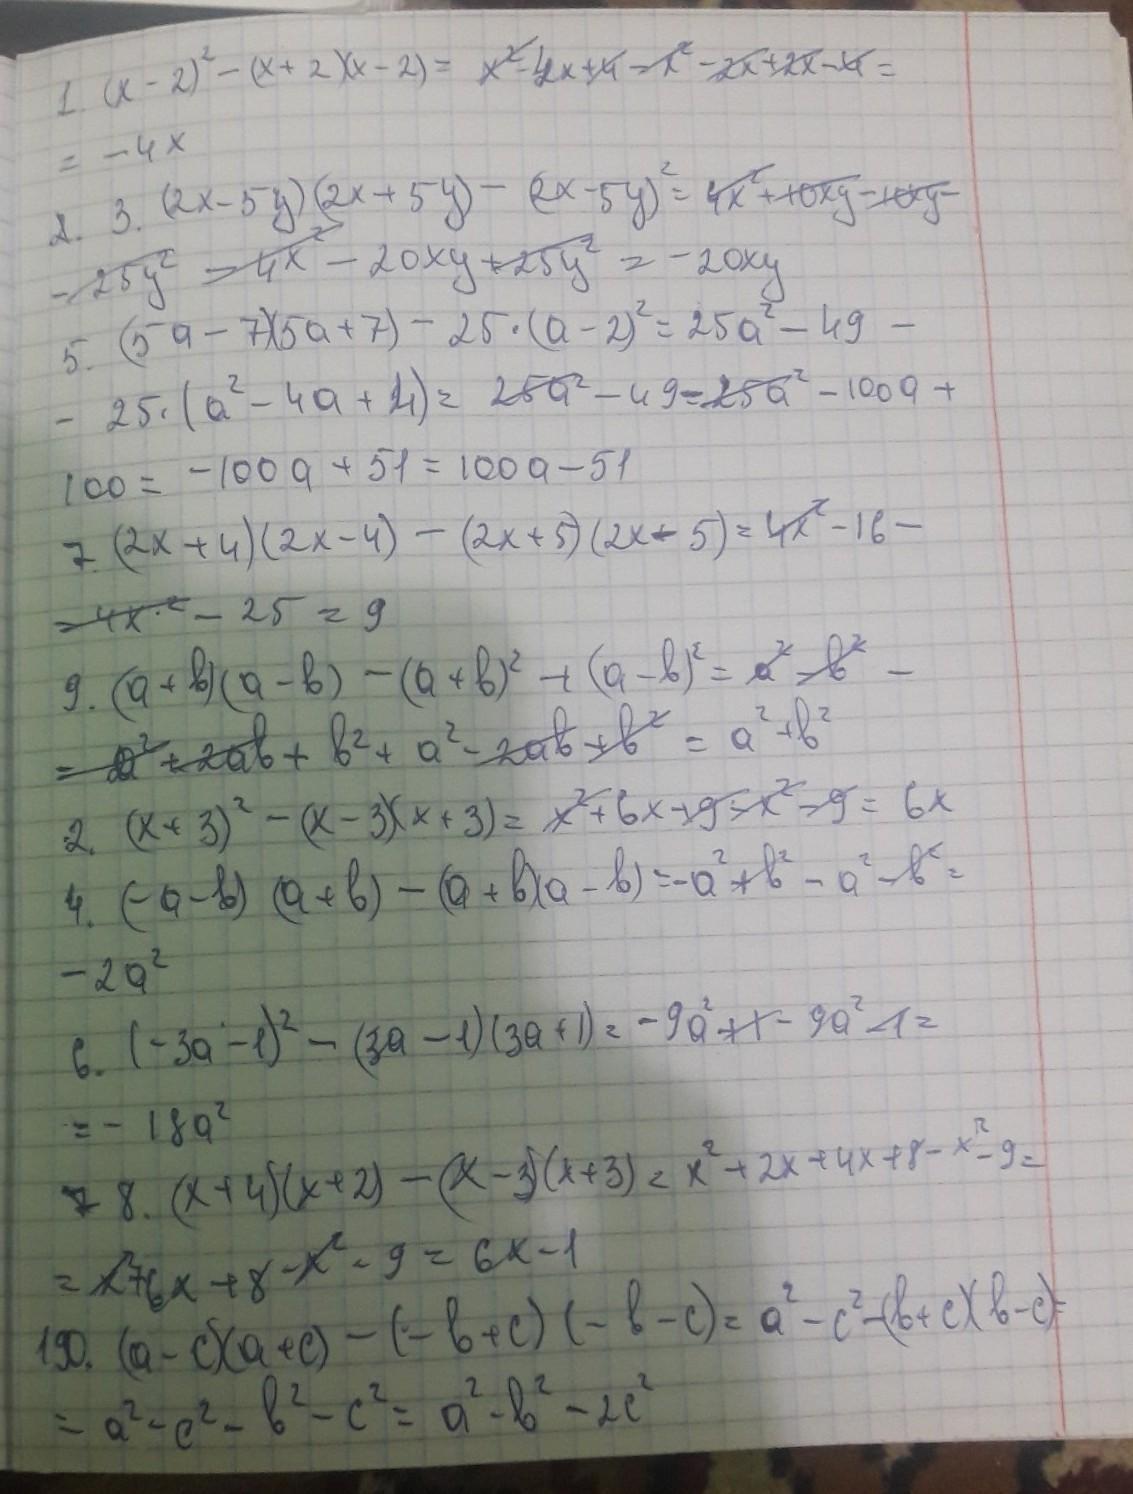 1. (x - 2)² - (x + 2)(x - 2) = x² - 4x + 4 - x² - 2x + 2x - 4 =
= - 4x
2. 3. (2x - 5y)(2x + 5y) - (2x - 5y)² = 4x² + 10xy - 10xy -
- 25y² - 4x² - 20xy + 25y² = - 20xy
5. (5a - 7)(5a + 7) - 25 · (a - 2)² = 25a² - 49 -
- 25 · (a² - 4a + 4) = 25a² - 49 - 25a² - 100a +
100 = - 100a + 51 = 100a - 51
7. (2x + 4)(2x - 4) - (2x + 5)(2x - 5) = 4x² - 16 -
- 4x² - 25 = 9
9. (a + b)(a - b) - (a + b)² + (a - b)² = a² - b² -
- a² + 2ab + b² + a² - 2ab + b² = a² + b²
2. (x + 3)² - (x - 3)(x + 3) = x² + 6x + 9 - x² - 9 = 6x
4. (- a - b) (a + b) - (a + b)(a - b) = - a² + b² - a² - b² =
- 2a²
6. (- 3a - 1)² - (3a - 1)(3a + 1) = - 9a² + 1 - 9a² - 1 =
= - 18a²
8. (x + 4)(x + 2) - (x - 3)(x + 3) = x² + 2x + 4x + 8 - x² - 9 =
= x² + 6x + 8 - x² - 9 = 6x - 1
10. (a - c)(a + c) - (- b + c) (- b - c) = a² - c² - (b + c)(b - c) =
= a² - c² - b² - c² = a² - b² - 2c²